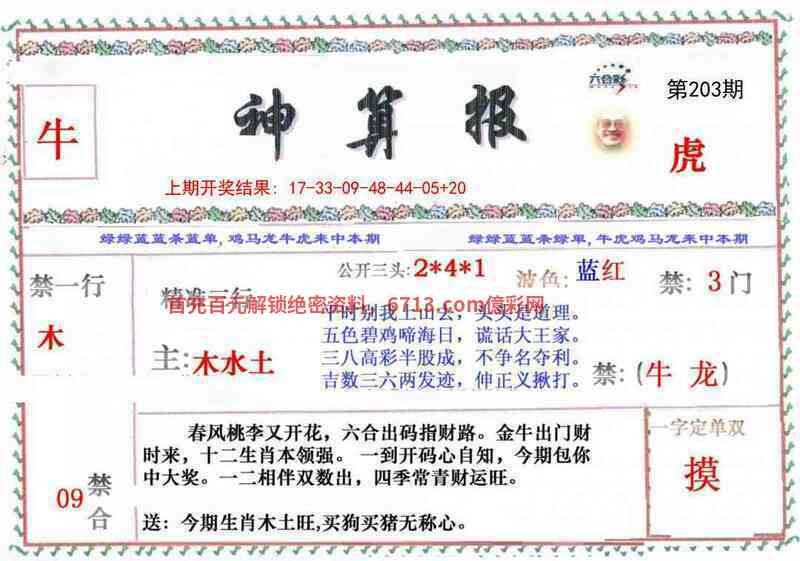 神算报
六合彩
第203期
牛
虎
上期开奖结果：17-33-09-48-44-05+20
绿绿蓝蓝杀蓝单，鸡马龙牛虎来中本期
绿绿蓝蓝杀绿单，牛虎鸡马龙来中本期
禁一行
木
精准三行
主：木水土
公开三头：2*4*1
波色：蓝红
禁：3门
首充百充解锁绝密资料，6713.com億彩网
平时别我上山去，头头是道理。
五色碧鸡啼海日，谎话大王家。
三八高彩半股成，不争名夺利。
吉数三六两发迹，伸正义揪打。
禁：（牛 龙）
09
禁合
春风桃李又开花，六合出码指财路。金牛出门财
时来，十二生肖本领强。一到开码心自知，今期包你
中大奖。一二相伴双数出，四季常青财运旺。
送：今期生肖木土旺,买狗买猪无称心。
一字定单双
摸